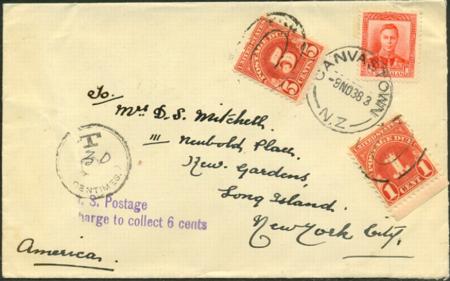 UNITED STATES
POSTAGE DUE
5
5 CENTS 5
CANVASTOWN
-9NO38
N.Z.
UNITED STATES
POSTAGE DUE
1
1 CENT 1
To.
Mrs D. S. Mitchell.
111 Newbold Place,
Kew. Gardens,
Long Island.
New York City.
America.
T
30
CENTIMES.
U. S. Postage
harge to collect 6 cents